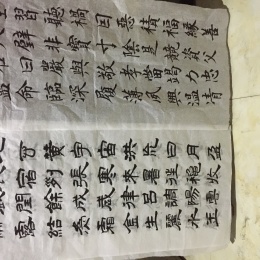 習聽禍因惡積福緣善
璧非寶寸陰是競資父
曰嚴與敬孝當竭力忠
盡命臨深履薄夙興溫凊
黃宇宙洪荒日月盈
宿列張寒來暑往秋收
閏餘成歲律呂調陽雲
露結為霜金生麗水